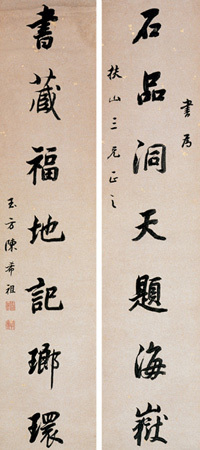 書為
石品洞天題海嶽
扶山三兄正之
書藏福地記瑯環
玉方陳希祖